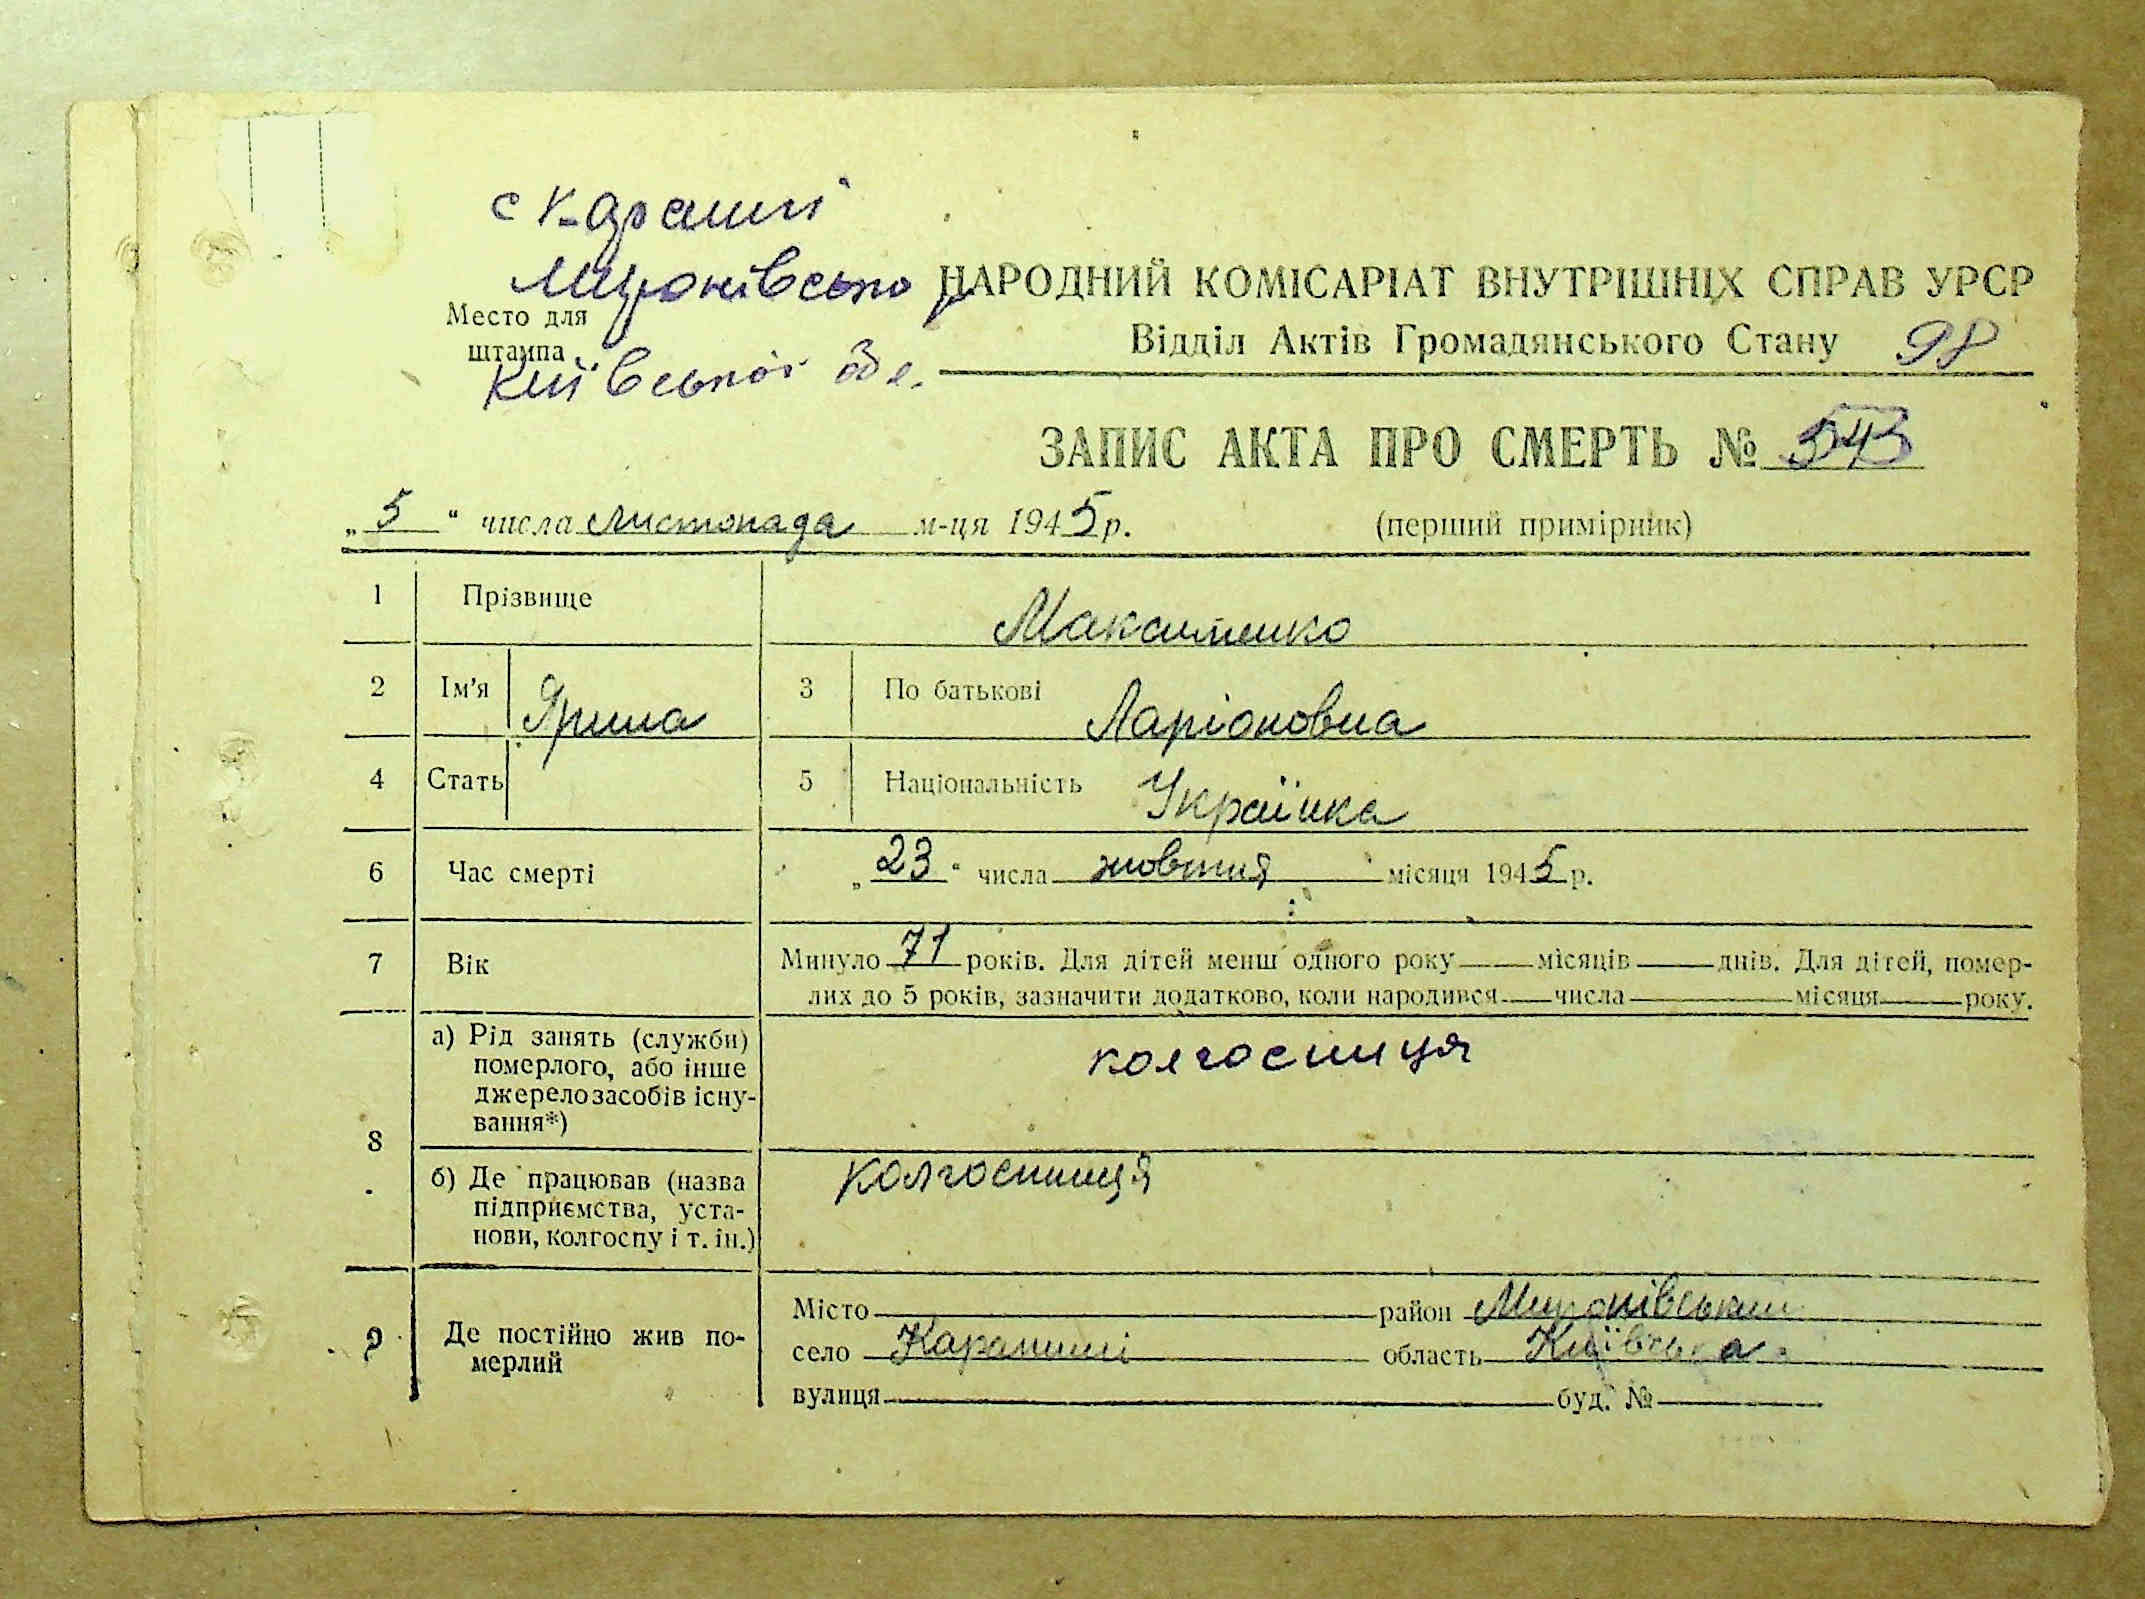 с Карапиші
Миронівського р
НАРОДНИЙ КОМІСАРІАТ ВНУТРІШНІХ СПРАВ УРСР
Место для
штампа
Київської обл.
Відділ Актів Громадянського Стану 98
ЗАПИС АКТА ПРО СМЕРТЬ № 543
„5“ числа листопада м-ця 1945 р. (перший примірник)
1 Прізвище Максименко
2 Ім'я Ярина 3 По батькові Ларіоновна
4 Стать 5 Національність Українка
6 Час смерті „23“ числа жовтня місяця 1945 р.
7 Вік Минуло 71 років. Для дітей менш одного року місяців днів. Для дітей, помер-
лих до 5 років, зазначити додатково, коли народився числа місяця року.
8 а) Рід занять (служби)
померлого, або інше
джерело засобів існу-
вання*)
колгоспниця
б) Де працював (назва
підприємства, уста-
нови, колгоспу і т. ін.)
колгоспниця
9 Де постійно жив по-
мерлий
Місто район Миронівський
село Карапиші область Київська
вулиця буд. №